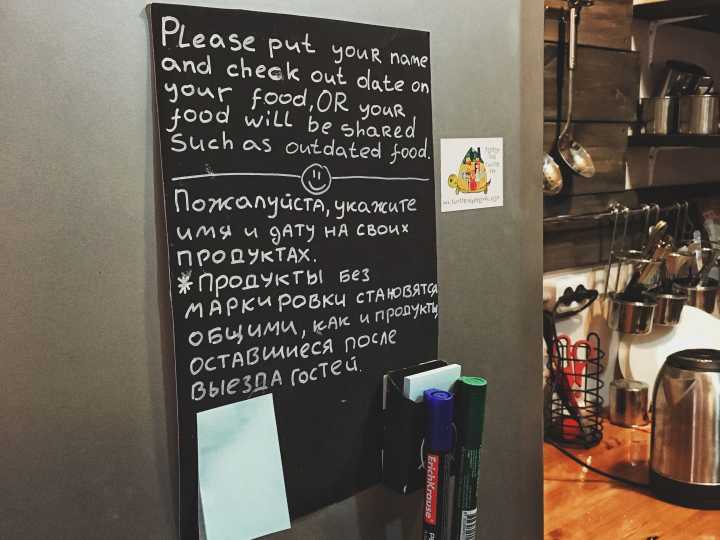 Please put your name
and check out date on
your food, OR your
food will be shared
Such as outdated food.
Пожалуйста, укажите
имя и дату на своих
продуктах.
*Продукты без
маркировки становятся
общими, как и продукты,
оставшиеся после
выезда гостей.
ErichKrause